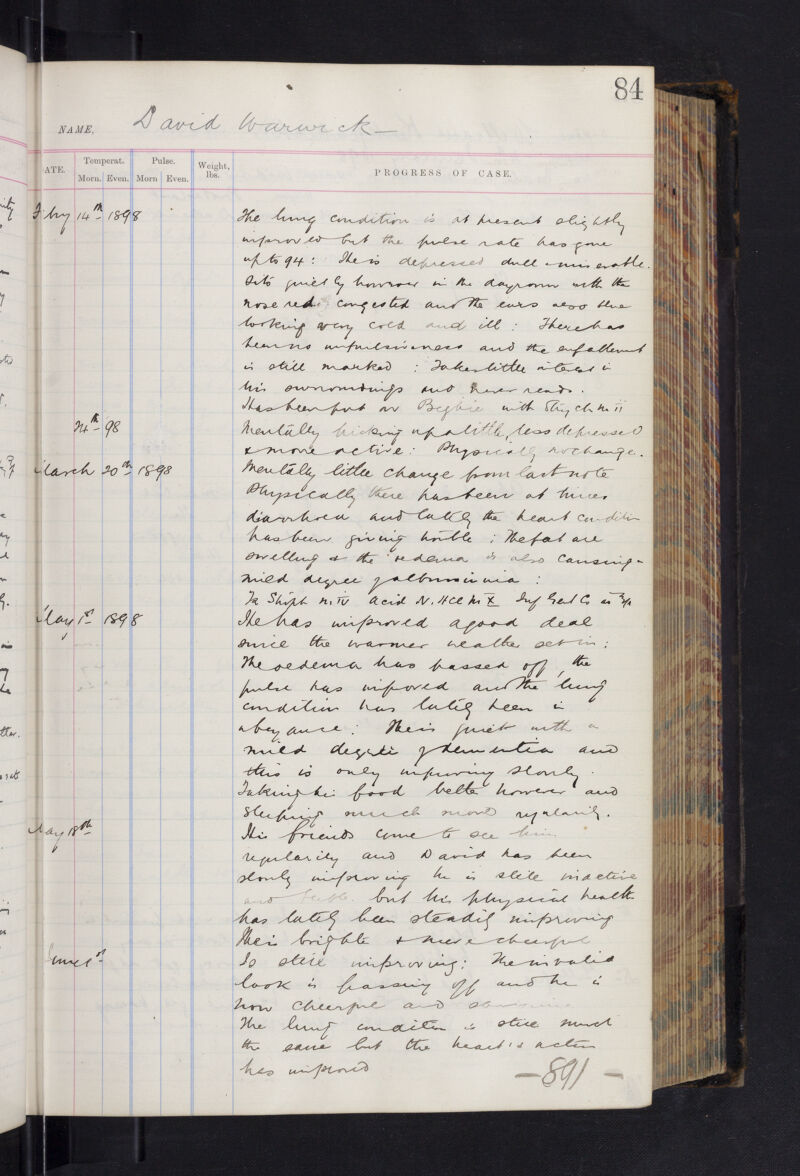 84
NAME, David Warwick
DATE. Temperat. Pulse. Weight, lbs. PROGRESS OF CASE.
Morn. Even. Morn Even.
Feby 14th 1898 The lung condition is at present slightly
improved but the pulse rate has gone
up to 94: He is depressed dull & miserable.
Sits quietly however in the dayroom with the
nose red & congested and the ears also blue
looking very cold and ill: There has
been no impulsiveness and the enfeeblement
is still marked: Takes little interest in
his surroundings and never reads.
Has been put on Begbie with Strych m ii
24th 98 Mentally picking up a little, less depressed
& more active: Physically no change.
March 20th 1898 Mentally little change from last note
Physically there has been at times
diarrhoea and lately the heart condition
has been giving trouble: The feet are
swelling & the oedema is also causing a
mild degree of albuminuria:
Acid N. HCl m x
May 1st 1898 He has improved a good deal
since the warmer weather set in:
The oedema has passed off, the
pulse has improved and the lung
condition has lately been in
abeyance: He is quiet with a
mild degree of dementia and
this is only improving slowly.
Taking his food better however and
sleeping much more regularly.
May 18th His friends come to see him
regularly and David has been
slowly improving he is still inactive
and feeble but his physical health
has lately been steadily improving
He is brighter & more cheerful
June 1st Is still improving: The invalid
look is passing off and he is
now cheerful and
The lung condition is still much
the same but the heart's action
has improved
- 891 -